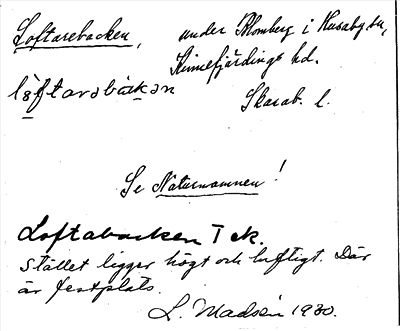 Loftarebacken, under Blomberg i Husaby sn,
Kinnefjärdings hd.
lòftarəbàkən
Skarab. l.
Se Naturnamnen!
Loftabacken T ek.
Stället ligger högt och luftigt. Där
är festplats.
L. Madsén 1930.